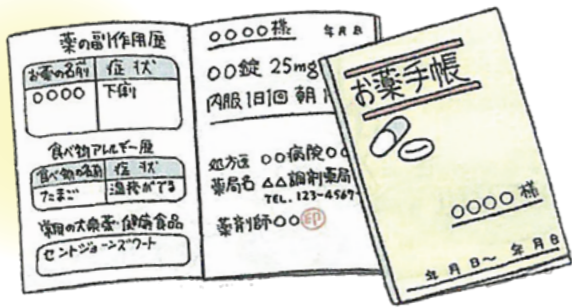 薬の副作用歴
お薬の名前 症状
○○○○ 下痢
食べ物アレルギー歴
食べ物の名前 症状
たまご 湿疹がでる
常用の大衆薬・健康食品
セントジョーンズワート
○○○○様 年月日
○○錠 25mg
内服1日1回 朝1
処方医 ○○病院○○
薬局名 △△調剤薬局
TEL. 123-4567-
薬剤師○○ 印
お薬手帳
○○○○様
年月日〜 年月日